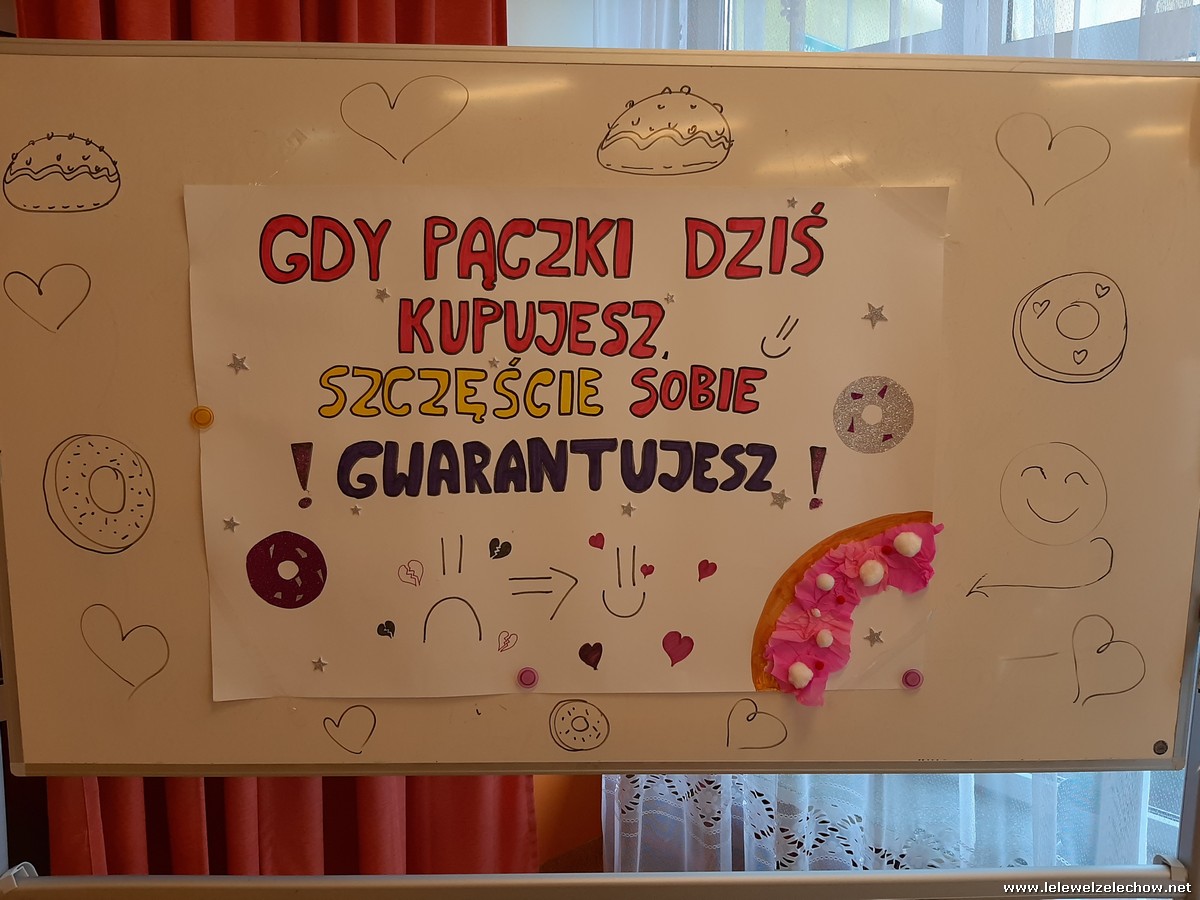 GDY PĄCZKI DZIŚ
KUPUJESZ,
SZCZĘŚCIE SOBIE
! GWARANTUJESZ !
www.lelewelzelechow.net